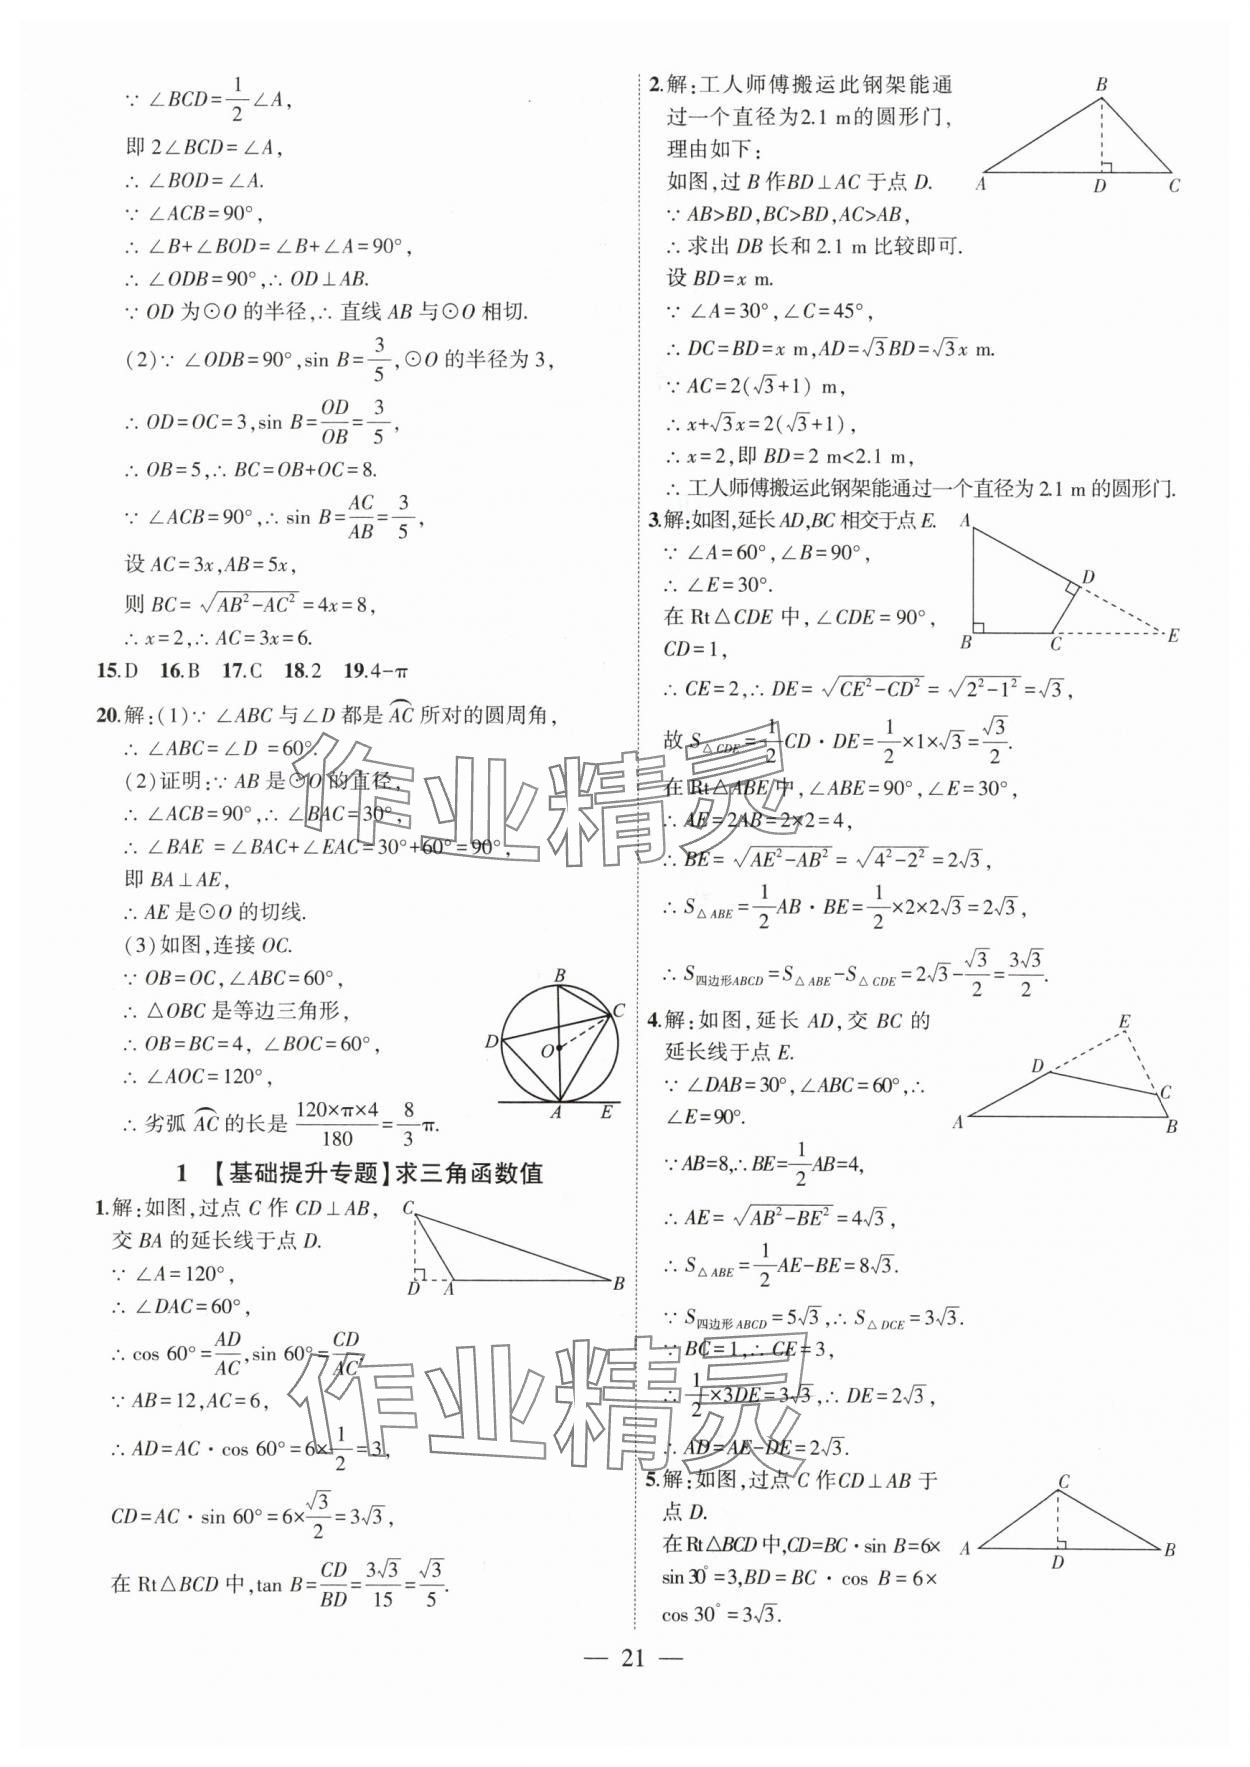 ∵ ∠BCD=1/2∠A,
即 2∠BCD=∠A,
∴ ∠BOD=∠A.
∵ ∠ACB=90°,
∴ ∠B+∠BOD=∠B+∠A=90°,
∴ ∠ODB=90°,∴ OD⊥AB.
∵ OD 为⊙O 的半径,∴ 直线 AB 与⊙O 相切.
(2)∵ ∠ODB=90°,sin B=3/5,⊙O 的半径为 3,
∴ OD=OC=3,sin B=OD/OB=3/5,
∴ OB=5,∴ BC=OB+OC=8.
∵ ∠ACB=90°,∴ sin B=AC/AB=3/5,
设 AC=3x,AB=5x,
则 BC=√(AB²-AC²)=4x=8,
∴ x=2,∴ AC=3x=6.
15.D 16.B 17.C 18.2 19.4-π
20.解:(1)∵ ∠ABC 与∠D 都是⌒AC 所对的圆周角,
∴ ∠ABC=∠D =60°.
(2)证明:∵ AB 是⊙O 的直径,
∴ ∠ACB=90°,∴ ∠BAC=30°,
∴ ∠BAE =∠BAC+∠EAC=30°+60°=90°,
即 BA⊥AE,
∴ AE 是⊙O 的切线.
(3)如图,连接 OC.
∵ OB=OC,∠ABC=60°,
∴ △OBC 是等边三角形,
∴ OB=BC=4, ∠BOC=60°,
∴ ∠AOC=120°,
∴ 劣弧 ⌒AC 的长是 (120×π×4)/180=8/3π.
B
C
D
O
A E
1 【基础提升专题】求三角函数值
1.解:如图,过点 C 作 CD⊥AB,
交 BA 的延长线于点 D.
∵ ∠A=120°,
∴ ∠DAC=60°,
∴ cos 60°=AD/AC,sin 60°=CD/AC,
∵ AB=12,AC=6,
∴ AD=AC·cos 60°=6×1/2=3,
CD=AC·sin 60°=6×√3/2=3√3,
在 Rt△BCD 中,tan B=CD/BD=3√3/15=√3/5.
C
D A B
2.解:工人师傅搬运此钢架能通
过一个直径为2.1 m的圆形门,
理由如下:
如图,过 B 作BD⊥AC 于点 D.
∵ AB>BD,BC>BD,AC>AB,
∴ 求出 DB 长和 2.1 m 比较即可.
设 BD=x m.
∵ ∠A=30°,∠C=45°,
∴ DC=BD=x m,AD=√3BD=√3x m.
∵ AC=2(√3+1) m,
∴ x+√3x=2(√3+1),
∴ x=2,即 BD=2 m<2.1 m,
∴ 工人师傅搬运此钢架能通过一个直径为 2.1 m 的圆形门.
B
A D C
3.解:如图,延长 AD,BC 相交于点 E.
∵ ∠A=60°,∠B=90°,
∴ ∠E=30°.
在 Rt△CDE 中,∠CDE=90°,
CD=1,
∴ CE=2,∴ DE=√(CE²-CD²)=√(2²-1²)=√3,
故 S△CDE=1/2CD·DE=1/2×1×√3=√3/2.
在 Rt△ABE 中,∠ABE=90°,∠E=30°,
∴ AE=2AB=2×2=4,
∴ BE=√(AE²-AB²)=√(4²-2²)=2√3,
∴ S△ABE=1/2AB·BE=1/2×2×2√3=2√3,
∴ S四边形ABCD=S△ABE-S△CDE=2√3-√3/2=3√3/2.
A
D
B C E
4.解:如图,延长 AD,交 BC 的
延长线于点 E.
∵ ∠DAB=30°,∠ABC=60°,∴
∠E=90°.
∵AB=8,∴BE=1/2AB=4,
∴ AE=√(AB²-BE²)=4√3,
∴ S△ABE=1/2AE-BE=8√3.
∵ S四边形ABCD=5√3,∴ S△DCE=3√3.
∵ BC=1,∴ CE=3,
∴ 1/2×3DE=3√3,∴ DE=2√3,
∴ AD=AE-DE=2√3.
E
D
C
A B
5.解:如图,过点 C 作CD⊥AB 于
点 D.
在Rt△BCD 中,CD=BC·sin B=6×
sin30°=3,BD=BC·cos B=6×
cos 30°=3√3.
C
A D B
— 21 —
作业精灵
作业精灵